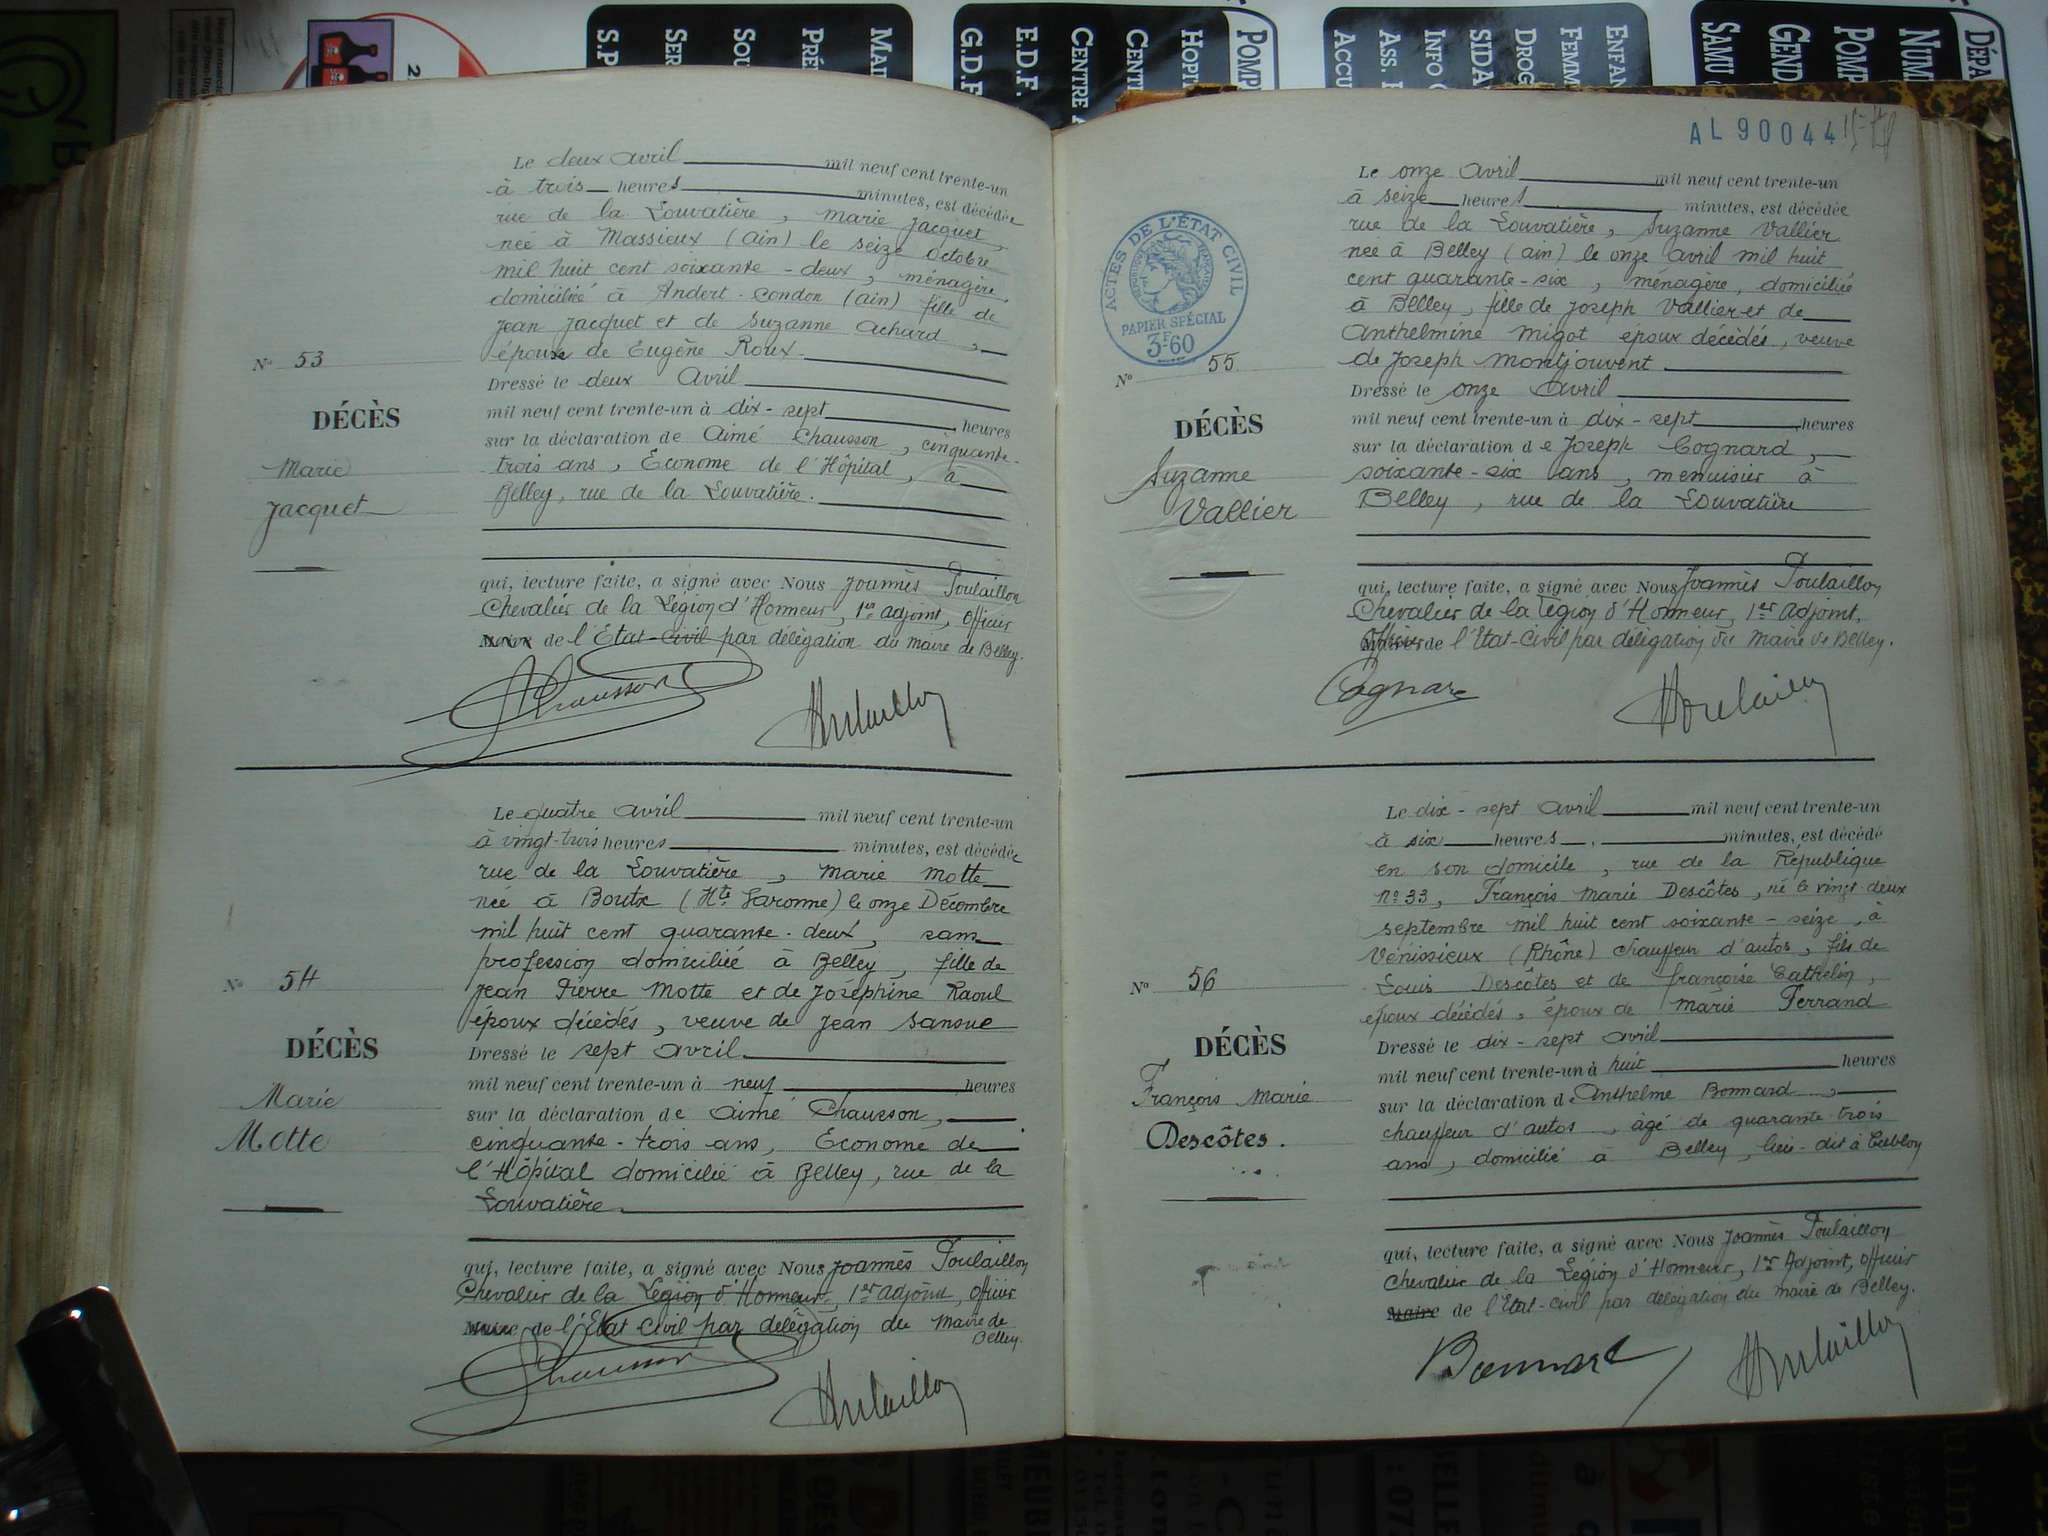 MAI
PRÉ
SOU
SER
S.P
POMP
HOPI
CENTI
CENTRE A
E.D.F.
G.D.F
ENFAN
FEMM
DROG
SIDA
INFO C
ASS. I
ACCU
DÉPA
NUM
POMP
GEND
SAMU
Le deux avril mil neuf cent trente-un
à trois heures minutes, est décédée
rue de la Louvatière, Marie Jacquet,
née à Massieux (Ain) le seize octobre
mil huit cent soixante-deux, ménagère,
domiciliée à Andert-Condon (Ain) fille de
Jean Jacquet et de Suzanne Achard,
épouse de Eugène Roux.
N° 53
Dressé le deux Avril
mil neuf cent trente-un à dix-sept heures
DÉCÈS
sur la déclaration de Aimé Chausson, cinquante-
Marie
trois ans, Econome de l'Hôpital, à
Jacquet
Belley, rue de la Louvatière.
qui, lecture faite, a signé avec Nous Joannès Poulaillon
Chevalier de la Légion d'Honneur, 1er adjoint, officier
Maire de l'Etat-Civil par délégation du maire de Belley.
Chausson Poulaillon
Le quatre avril mil neuf cent trente-un
à vingt-trois heures minutes, est décédée
rue de la Louvatière, Marie Motte
née à Boutx (Hte Garonne) le onze Décembre
mil huit cent quarante-deux, sans
profession domiciliée à Belley, fille de
N° 54
Jean Pierre Motte et de Joséphine Raoul
époux décédés, veuve de Jean Sansue
DÉCÈS
Dressé le sept avril
mil neuf cent trente-un à neuf heures
Marie
sur la déclaration de Aimé Chausson,
Motte
cinquante-trois ans, Econome de
l'Hôpital domicilié à Belley, rue de la
Louvatière.
qui, lecture faite, a signé avec Nous Joannès Poulaillon
Chevalier de la Légion d'Honneur, 1er adjoint, officier
Maire de l'Etat Civil par délégation du Maire de
Belley.
Chausson Poulaillon
AL 90044
Le onze avril mil neuf cent trente-un
à seize heures minutes, est décédée
rue de la Louvatière, Suzanne Vallier
née à Belley (Ain) le onze avril mil huit
cent quarante-six, ménagère, domiciliée
à Belley, fille de Joseph Vallier et de
Anthelmine Migot époux décédés, veuve
de Joseph Montjouvent.
ACTES DE L'ÉTAT CIVIL
PAPIER SPÉCIAL
3F60
N° 55
Dressé le onze avril
mil neuf cent trente-un à dix-sept heures
DÉCÈS
sur la déclaration de Joseph Cognard,
Suzanne
soixante-six ans, menuisier à
Vallier
Belley, rue de la Louvatière
qui, lecture faite, a signé avec Nous Joannès Poulaillon
Chevalier de la Légion d'Honneur, 1er Adjoint,
Officier de l'Etat-Civil par délégation du Maire de Belley.
Cognard Poulaillon
Le dix-sept avril mil neuf cent trente-un
à six heures minutes, est décédé
en son domicile, rue de la République
n° 33, François Marie Descôtes, né le vingt-deux
septembre mil huit cent soixante-seize, à
Vénissieux (Rhône) chauffeur d'autos, fils de
N° 56
Louis Descôtes et de Françoise Cathelin,
époux décédés, époux de Marie Ferrand
DÉCÈS
Dressé le dix-sept avril
mil neuf cent trente-un à huit heures
François Marie
sur la déclaration d'Anthelme Bonnard,
Descôtes.
chauffeur d'autos, âgé de quarante-trois
ans, domicilié à Belley, lieu-dit à
qui, lecture faite, a signé avec Nous Joannès Poulaillon
Chevalier de la Légion d'Honneur, 1er Adjoint, officier
Maire de l'Etat-civil par délégation du maire de Belley.
Bonnard Poulaillon